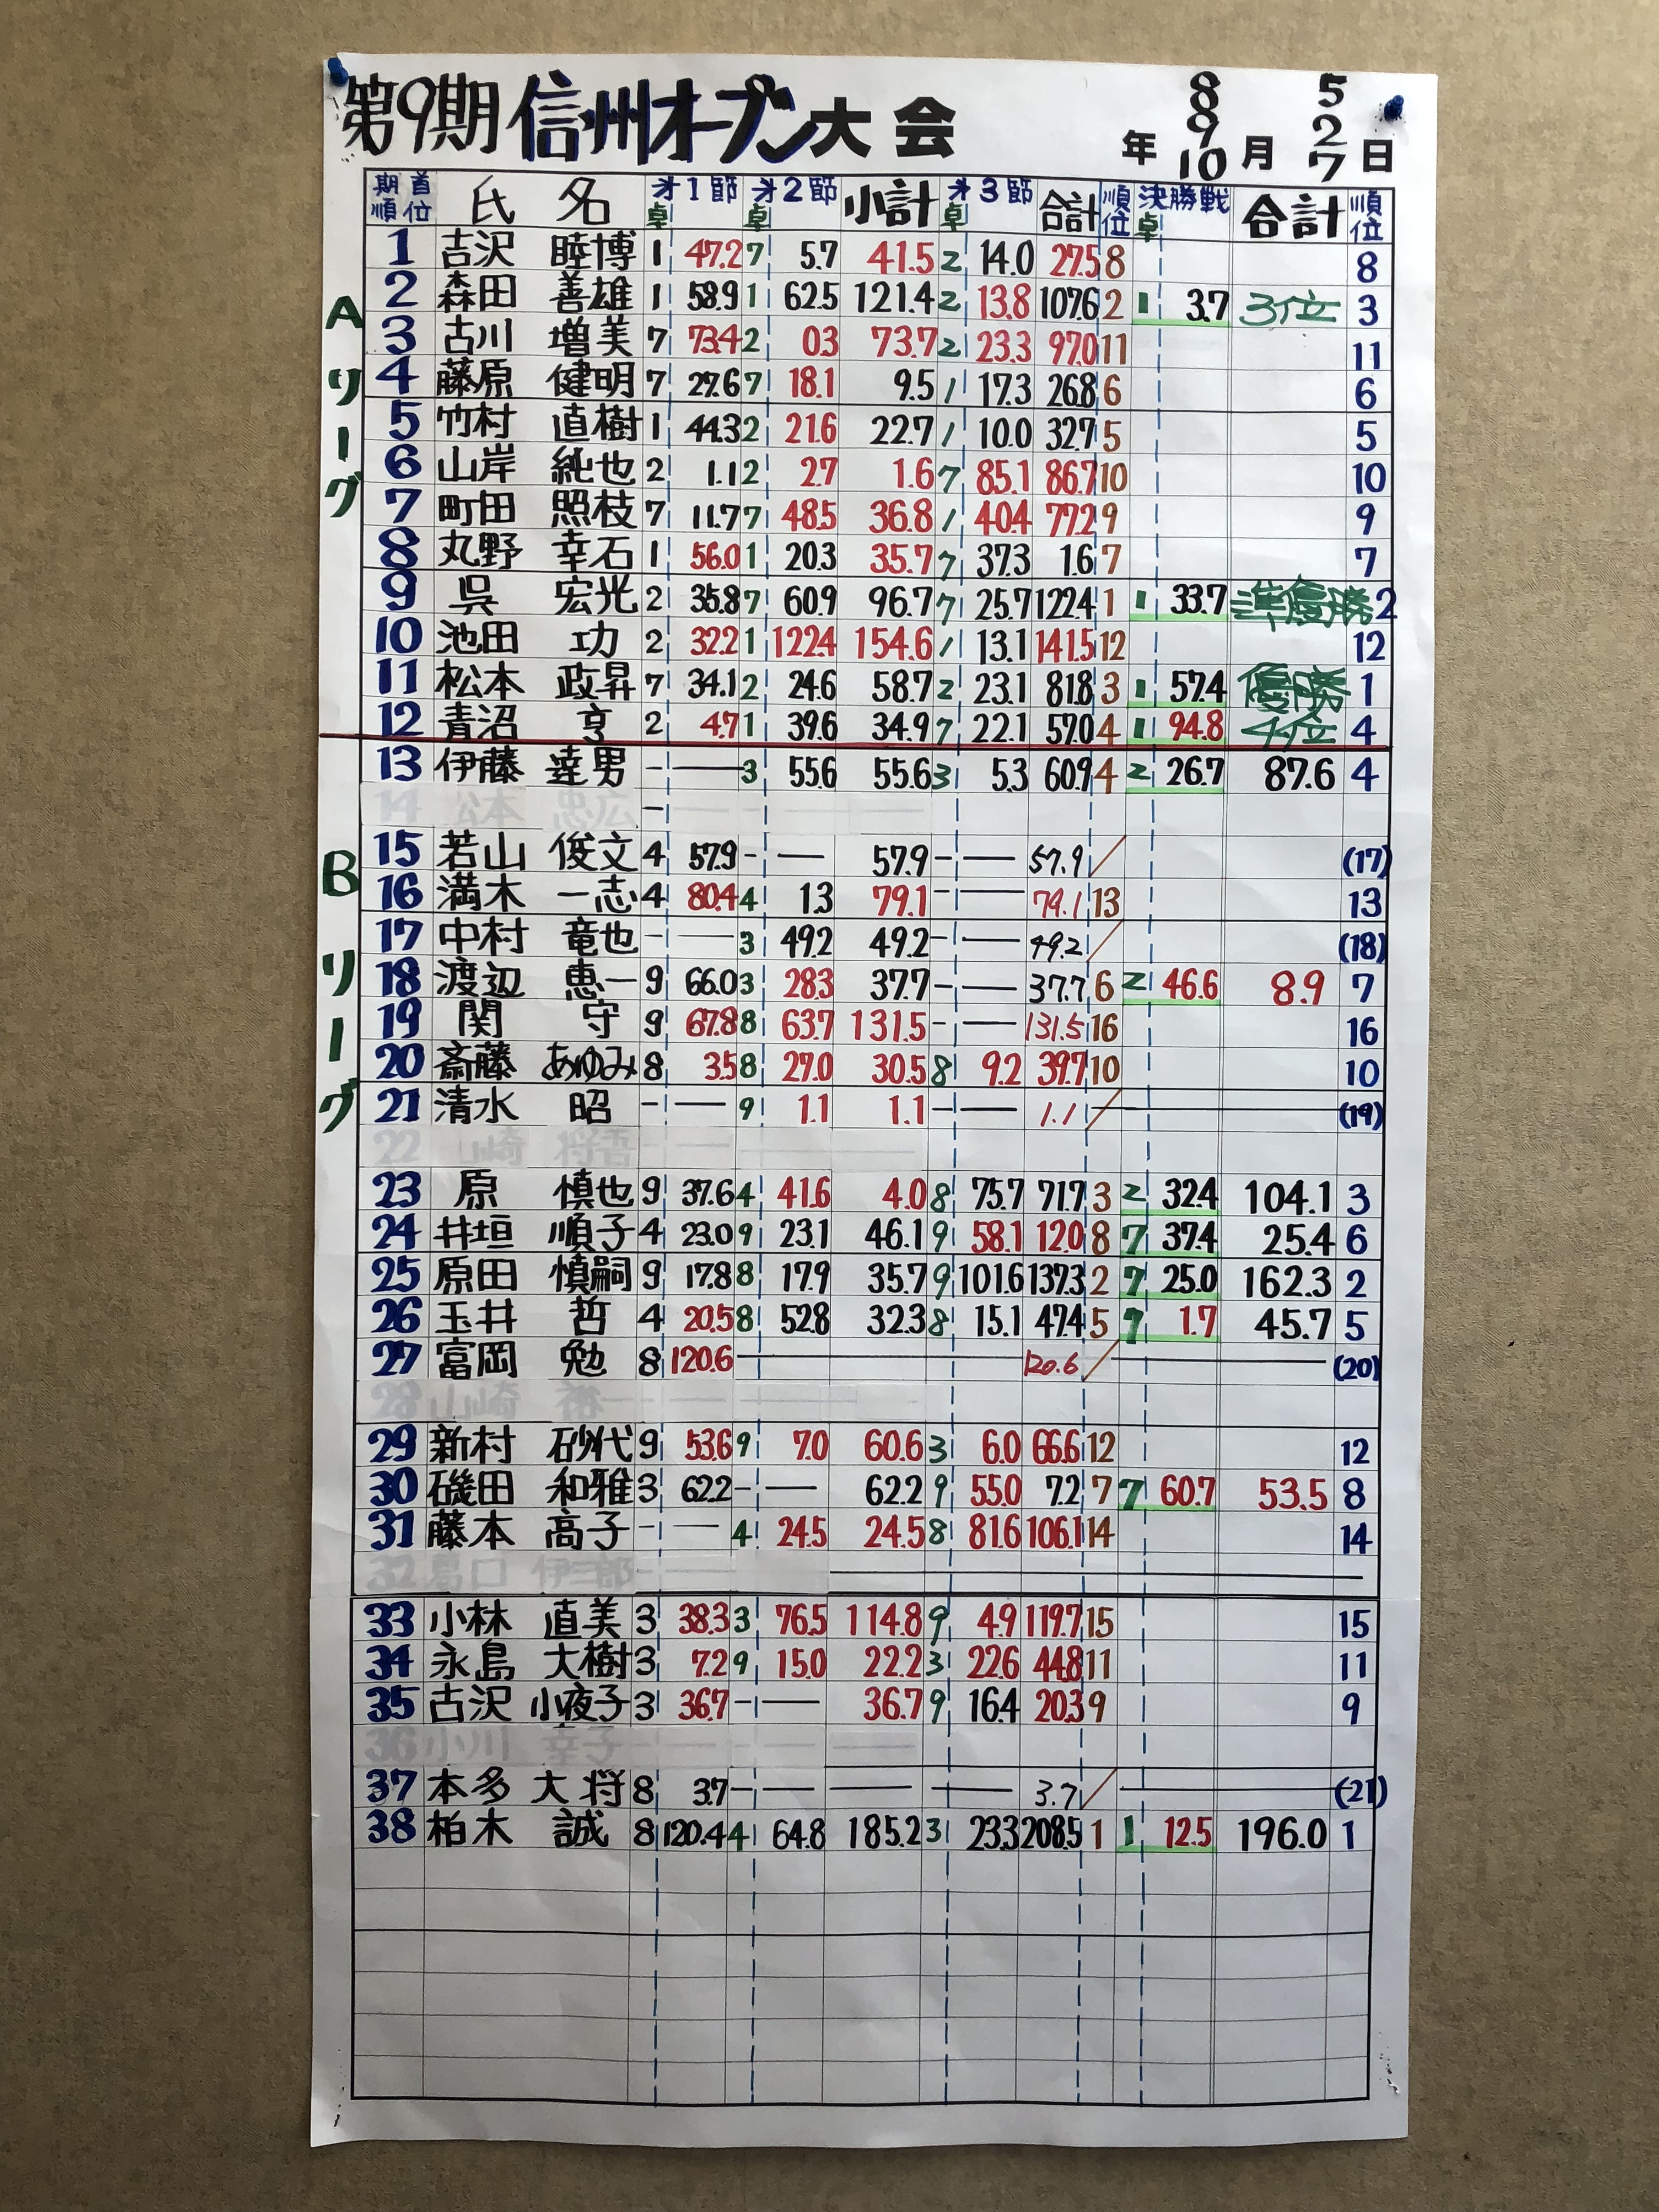 第9期 信州オープン大会 年 8 8 9 10 月 5 2 7 日
期首順位 氏名 卓 オ1節 卓 オ2節 小計 卓 オ3節 合計 順位 卓 決勝戦 合計 順位
Aリーグ
1 吉沢 睦博 1 47.2 7 5.7 41.5 2 14.0 27.5 8 8
2 森田 善雄 1 58.9 1 62.5 121.4 2 13.8 107.6 2 1 3.7 3位 3
3 古川 増美 7 73.4 2 0.3 73.7 2 23.3 97.0 11 11
4 藤原 健明 7 27.6 7 18.1 9.5 1 17.3 26.8 6 6
5 竹村 直樹 1 44.3 2 21.6 22.7 1 10.0 32.7 5 5
6 山岸 純也 2 1.1 2 2.7 1.6 7 85.1 86.7 10 10
7 町田 照枝 7 11.7 7 48.5 36.8 1 40.4 77.2 9 9
8 丸野 幸石 1 56.0 1 20.3 35.7 7 37.3 1.6 7 7
9 呉 宏光 2 35.8 7 60.9 96.7 7 25.7 122.4 1 1 33.7 準優勝 2
10 池田 功 2 32.2 1 122.4 154.6 1 13.1 141.5 12 12
11 松本 政昇 7 34.1 2 24.6 58.7 2 23.1 81.8 3 1 57.4 優勝 1
12 青沼 亨 2 4.7 1 39.6 34.9 7 22.1 57.0 4 1 94.8 4位 4
Bリーグ
13 伊藤 達男 - — 3 55.6 55.6 3 5.3 60.9 4 2 26.7 87.6 4
14 松本 忠広
15 若山 俊文 4 57.9 - — 57.9 - — 57.9 / (17)
16 満木 一志 4 80.4 4 1.3 79.1 - — 79.1 13 13
17 中村 竜也 - — 3 49.2 49.2 - — 49.2 / (18)
18 渡辺 恵一 9 66.0 3 28.3 37.7 - — 37.7 6 2 46.6 8.9 7
19 関 守 9 67.8 8 63.7 131.5 - — 131.5 16 16
20 斎藤 あゆみ 8 3.5 8 27.0 30.5 8 9.2 39.7 10 10
21 清水 昭 - — 9 1.1 1.1 - — 1.1 / — (19)
22 山崎 将吾
23 原 慎也 9 37.6 4 41.6 4.0 8 75.7 71.7 3 2 32.4 104.1 3
24 井垣 順子 4 23.0 9 23.1 46.1 9 58.1 12.0 8 7 37.4 25.4 6
25 原田 慎嗣 9 17.8 8 17.9 35.7 9 101.6 137.3 2 7 25.0 162.3 2
26 玉井 哲 4 20.5 8 52.8 32.3 8 15.1 47.4 5 7 1.7 45.7 5
27 富岡 勉 8 120.6 — 120.6 / — (20)
28 山崎
29 新村 砂代 9 53.6 9 7.0 60.6 3 6.0 66.6 12 12
30 磯田 和雅 3 62.2 - — 62.2 9 55.0 7.2 7 7 60.7 53.5 8
31 藤本 高子 - — 4 24.5 24.5 8 81.6 106.1 14 14
32
33 小林 直美 3 38.3 3 76.5 114.8 9 4.9 119.7 15 15
34 永島 大樹 3 7.2 9 15.0 22.2 3 22.6 44.8 11 11
35 古沢 小夜子 3 36.7 - — 36.7 9 16.4 20.3 9 9
36 小川 幸子
37 本多 大将 8 3.7 - — — — 3.7 / — (21)
38 柏木 誠 8 120.4 4 64.8 185.2 3 23.3 208.5 1 1 12.5 196.0 1